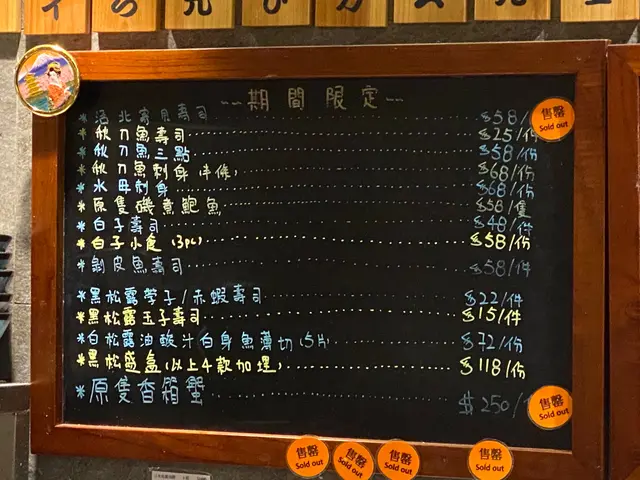 --期間限定--
*活北寄貝壽司 $58/
售罄
Sold out
*秋刀魚壽司 $25/份
*秋刀魚三點 $58/份
*秋刀魚刺身 $68/份
*水母刺身 $68/份
*原隻磯煮鮑魚 $58/隻
*白子壽司 $48/件
*白子小食 (3pc) $58/份
*剝皮魚壽司 $58/件
*黑松露帶子/赤蝦壽司 $22/件
*黑松露玉子壽司 $15/件
*白松露油蝦汁白身魚薄切 (5片 $72/份
*黑松盛盒(以上4款加埋) $118/份
*原隻香箱蟹 $250/
售罄
Sold out
售罄
Sold out
售罄
Sold out
售罄
Sold out
售罄
Sold out